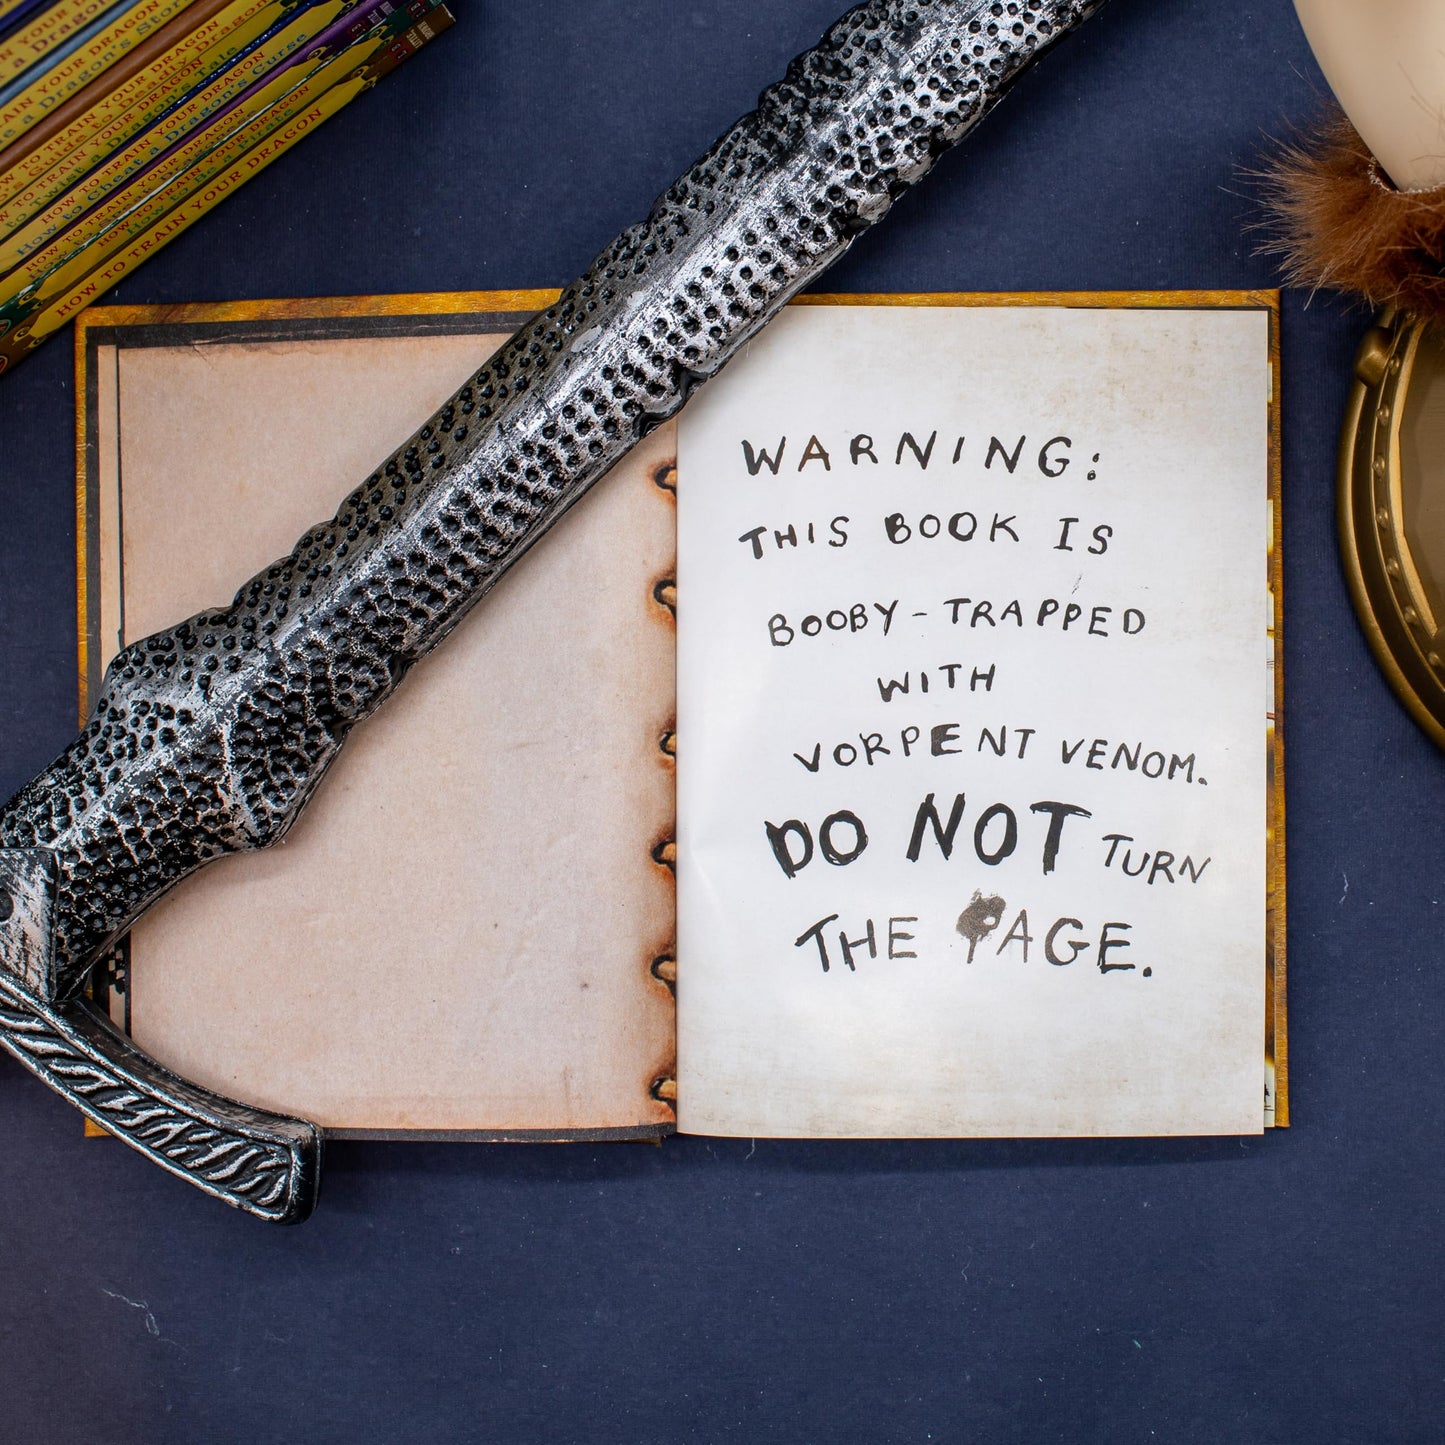 a Dragon
AIN YOUR DRAGON
e a Dragon's Stor
TRAIN YOUR DRAGON
Guide to Deadly Dragon
TO TRAIN YOUR DRAGON
to Twist a Dragon's Tale
HOW TO TRAIN YOUR DRAGON
How to Cheat a Dragon's Curse
HOW TO TRAIN YOUR DRAGON
HOW TO TRAIN YOUR DRAGON
How to Be a Pirate
HOW TO TRAIN YOUR DRAGON
WARNING:
THIS BOOK IS
BOOBY-TRAPPED
WITH
VORPENT VENOM.
DO NOT TURN
THE PAGE.